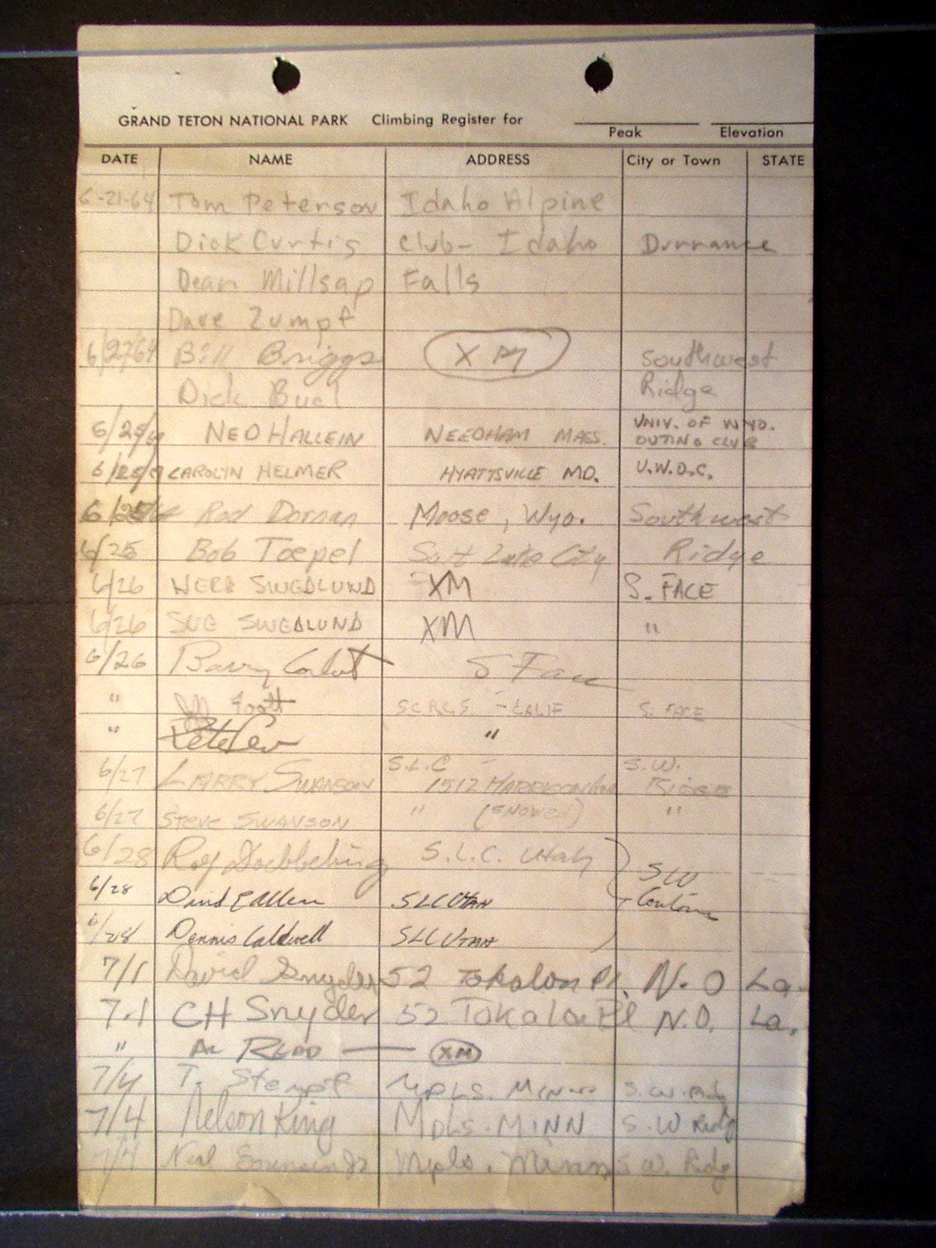 GRAND TETON NATIONAL PARK Climbing Register for
Peak Elevation
DATE NAME ADDRESS City or Town STATE
6-21-64 Tom Peterson Idaho Alpine
Dick Curtis Club- Idaho Durrance
Dean Millsap Falls
Dave Zumpf
6/27/64 Bill Briggs XM Southwest
Dick Bual Ridge
6/25/64 NED HALLEIN NEEDHAM MASS. UNIV. OF WYO.
OUTING CLUB
6/25/64 CAROLYN HELMER HYATTSVILLE MD. U.W.O.C.
6/25/64 Rod Dornan Moose, Wyo. Southwest
6/25 Bob Toepel Salt Lake City Ridge
6/26 HERB SWEDLUND XM S. FACE
6/26 SUE SWEDLUND XM "
6/26 Barry Corbet S Face
" SCRCS - CALIF S. FACE
" Pete Lev "
6/27 LARRY SWANSON S.L.C - S.W.
1512 HARRISON RIDGE
6/27 STEVE SWANSON " (SNOWED) "
6/28 S.L.C. Utah SW
6/28 David E Allen SLC UTAH
6/28 Dennis Caldwell SLC UTAH
7/1 David Snyder 52 Tokalon Pl. N.O La.
7.1 CH Snyder 52 Tokalon Pl N.O. La.
" Al READ — XM
7/4 T. Stempf MPLS. MINN S.W. Ridg
7/4 Nelson King MPLS. MINN S.W Ridg
7/4 Neal Mpls. Minn S.W. Ridg